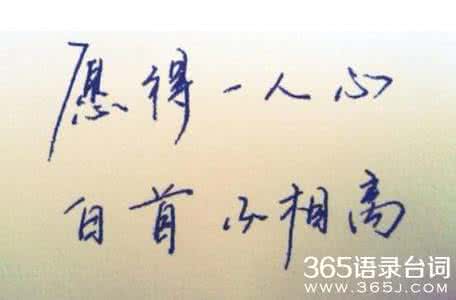 愿得一人心
白首不相离
365语录台词
WWW.365J.COM